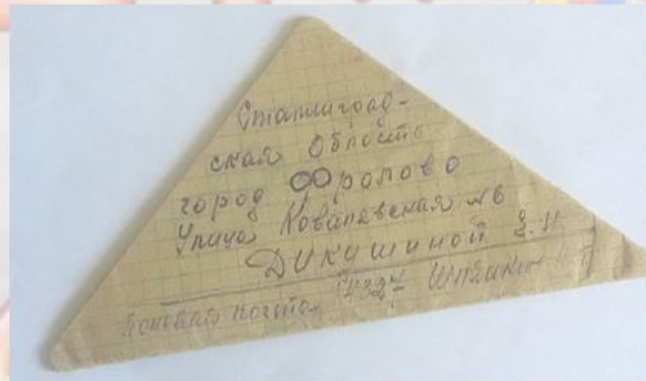 Сталинград-
ская область
город Фролово
Улица Ковалевская №6
Дикишиной
почта